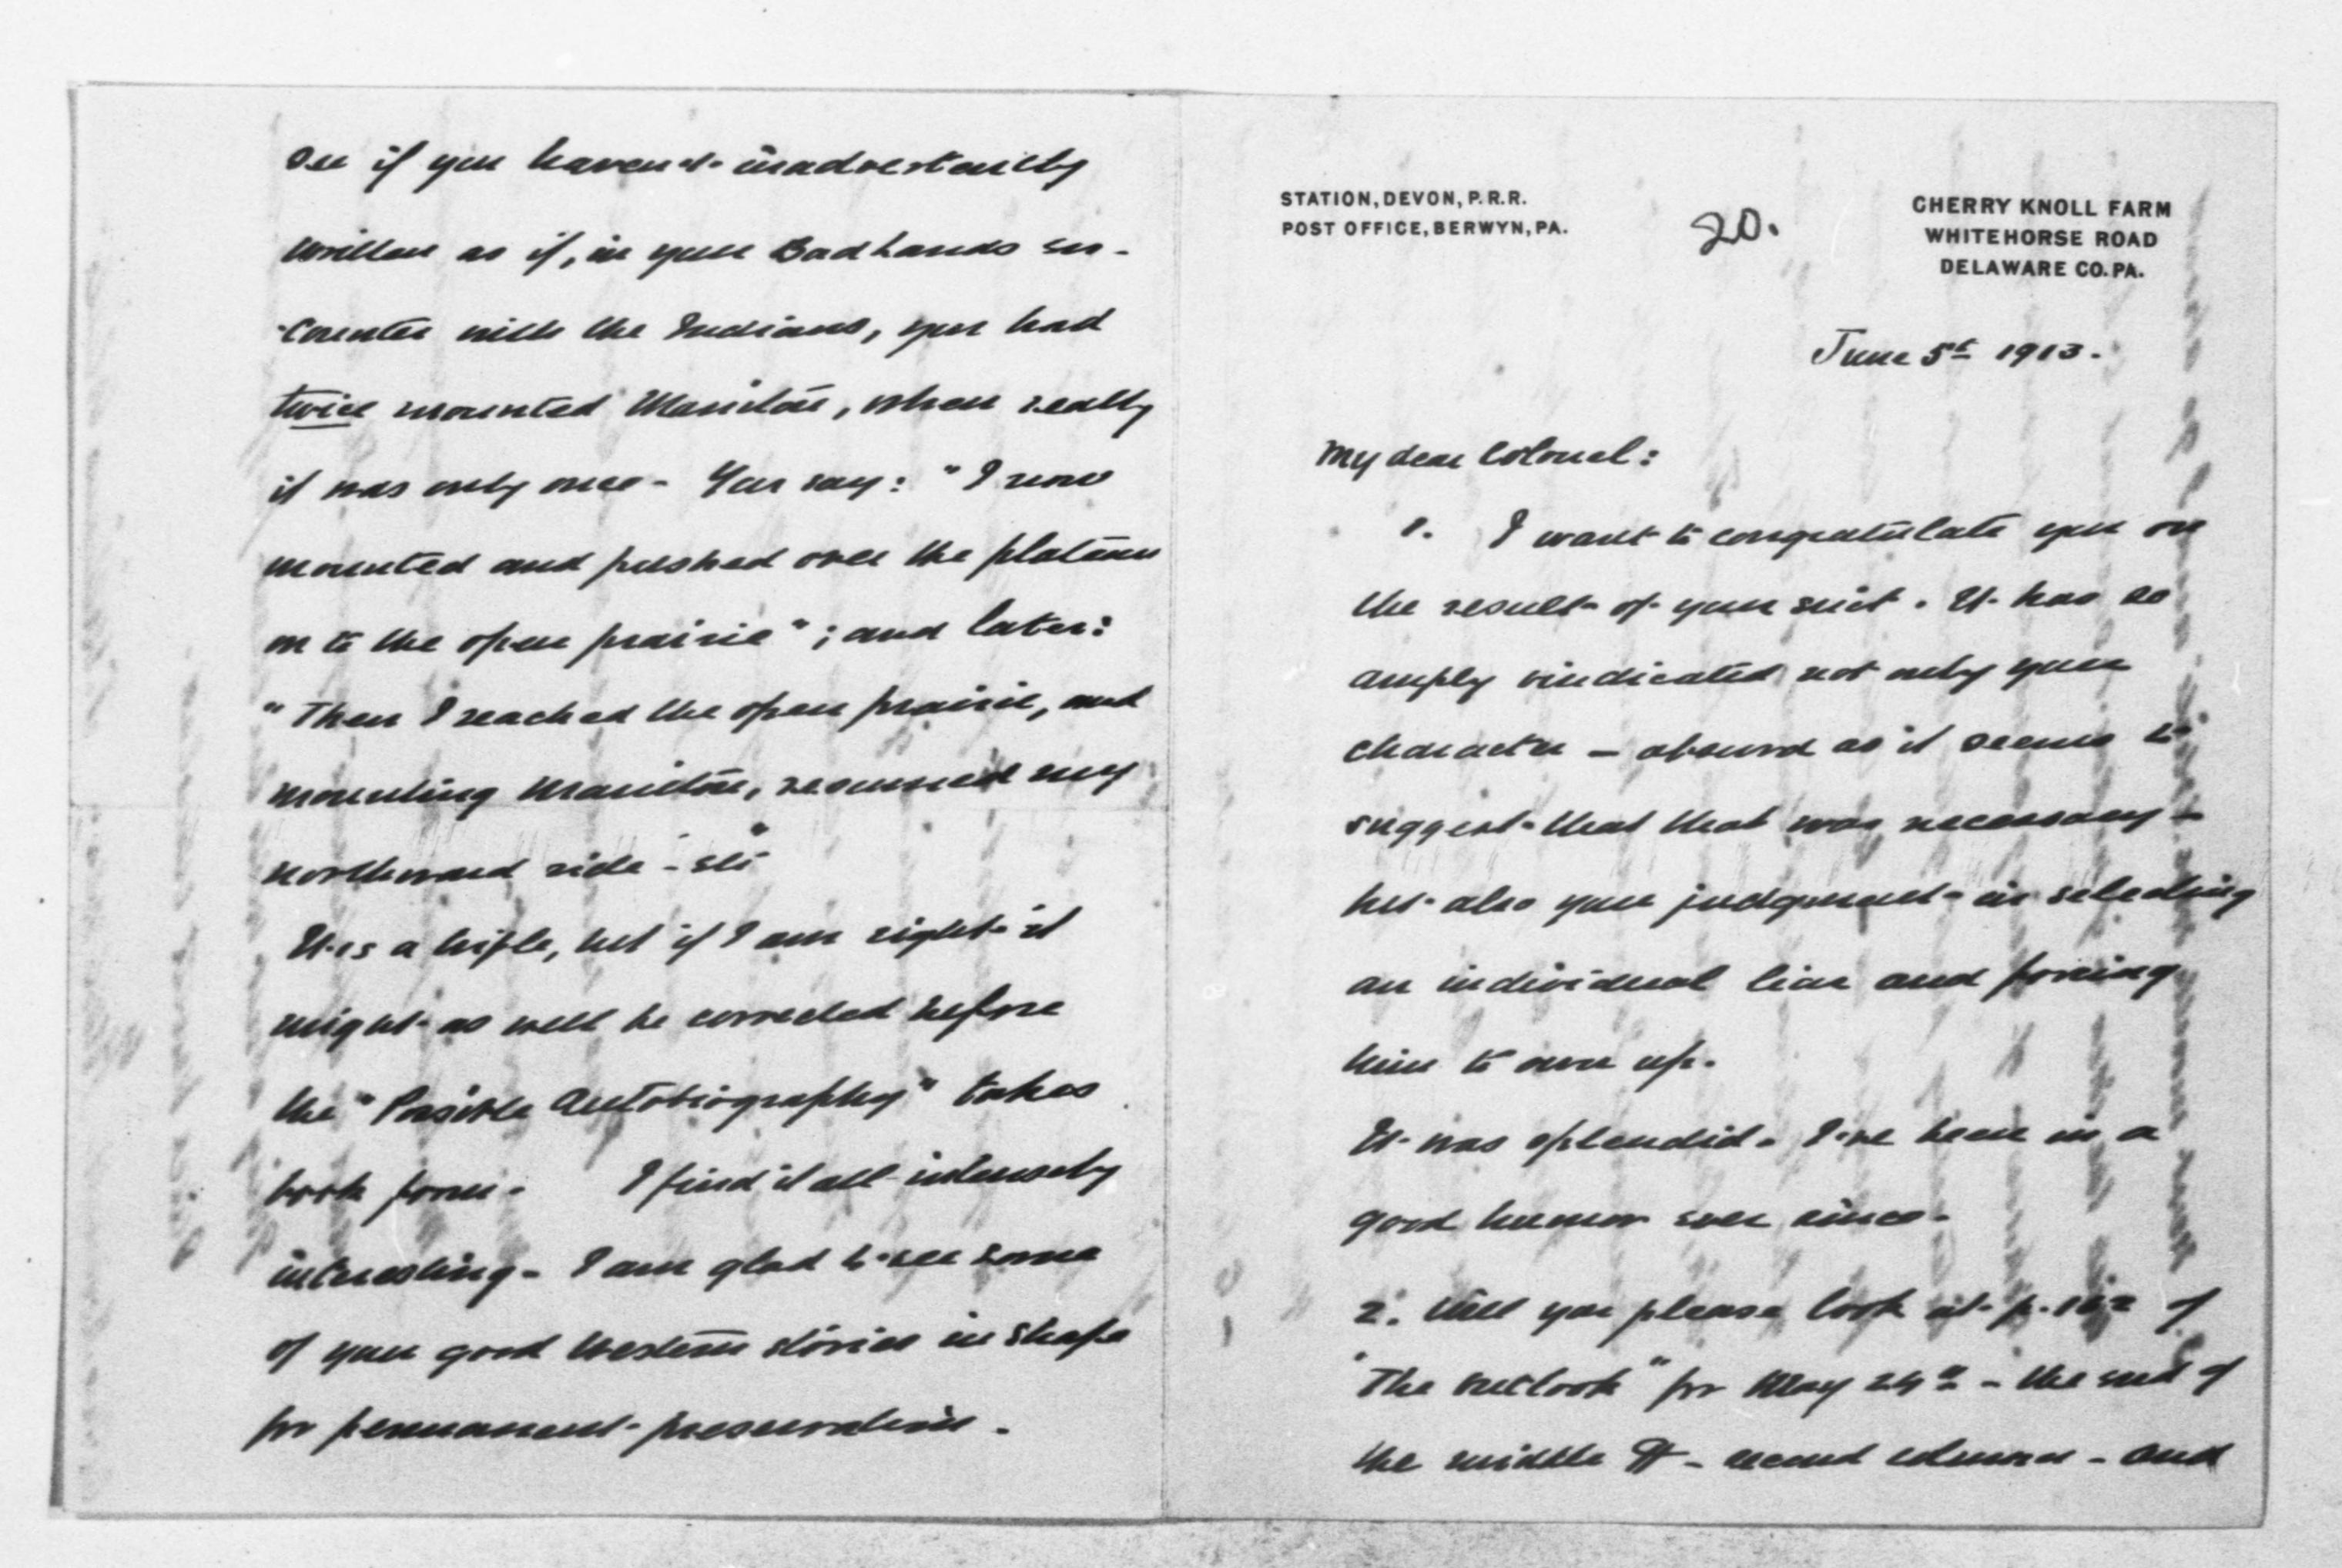 STATION, DEVON, P.R.R.
POST OFFICE, BERWYN, PA.
20.
CHERRY KNOLL FARM
WHITEHORSE ROAD
DELAWARE CO. PA.
June 5th 1913.
My dear Colonel:
1. I want to congratulate you on
the result of your suit. It has so
amply vindicated not only your
character – absurd as it seems to
suggest that that was necessary –
but also your judgment in selecting
an individual liar and forcing
him to own up.
It was splendid. I've been in a
good humor ever since.
2. Will you please look at p. of
"The Outlook" for May 24th – the end of
the middle ¶ – second column – and
see if you haven't inadvertently
written as if, in your Bad Lands en-
-counter with the Indians, you had
twice mounted Manitou, when really
it was only once. You say: "I now
mounted and pushed over the plateau
on to the open prairie"; and later:
"Then I reached the open prairie, and
mounting Manitou, resumed my
northward ride – etc"
It is a trifle, but if I am right it
might as well be corrected before
the "Possible Autobiography" takes
book form. I find it all intensely
interesting. I am glad to see some
of your good Western stories in shape
for permanent preservation.